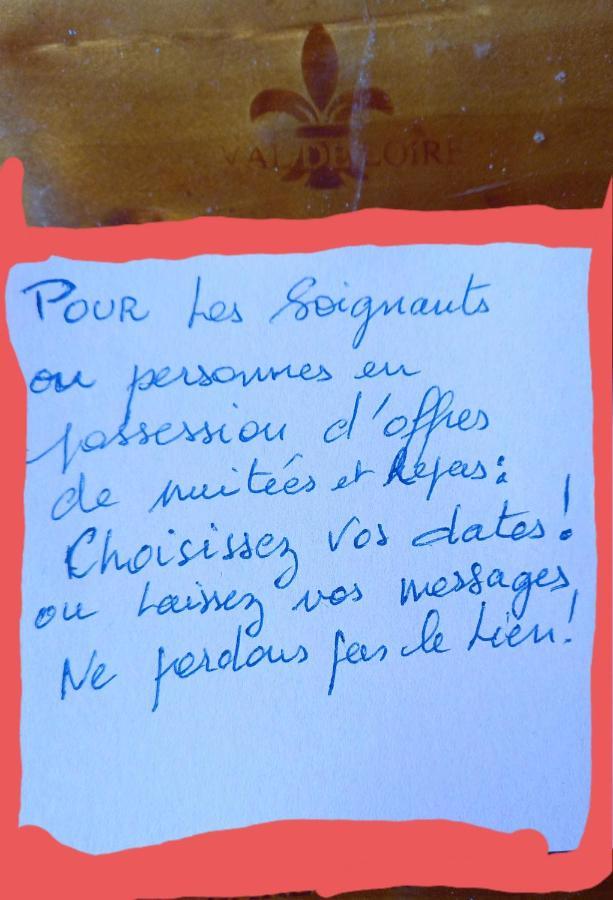 VAL DE LOIRE
POUR Les Soignants
ou personnes en
possession d'offres
de nuitées et Repas :
Choisissez vos dates !
ou Laissez vos messages
Ne perdons pas le Lien !